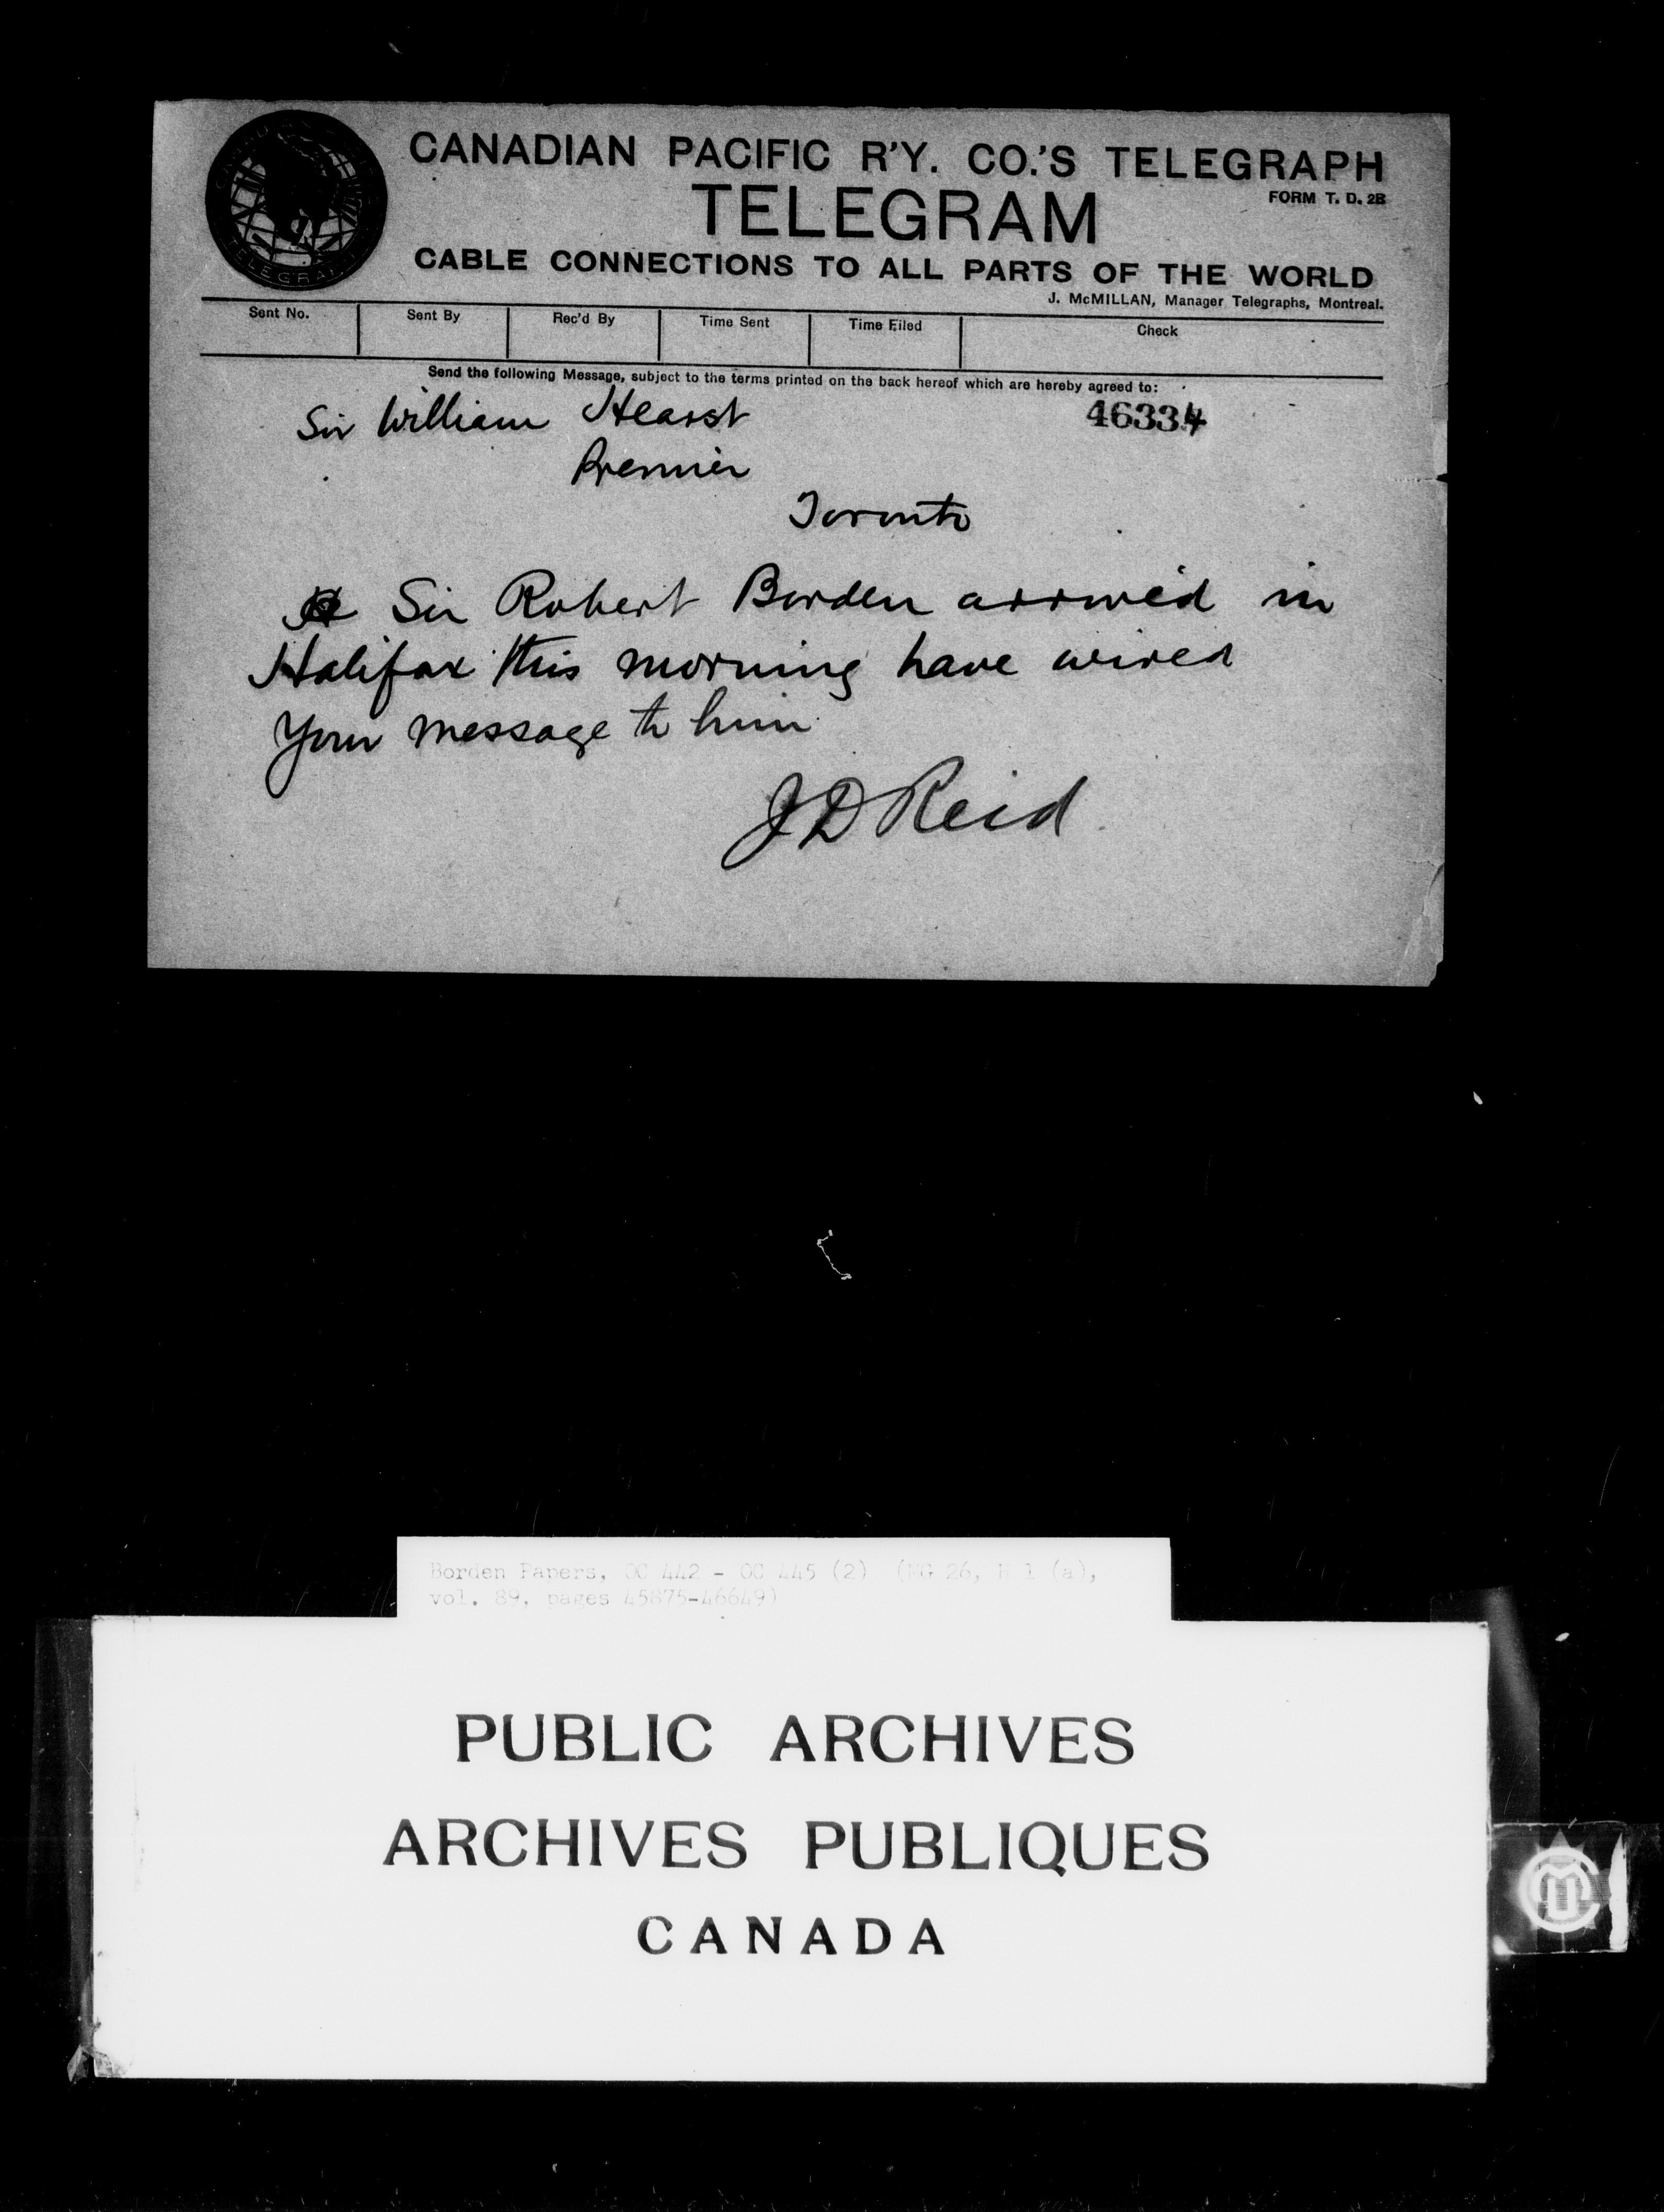 CANADIAN PACIFIC R'Y. CO.'S TELEGRAPH
TELEGRAM
FORM T. D. 2B
CABLE CONNECTIONS TO ALL PARTS OF THE WORLD
J. McMILLAN, Manager Telegraphs, Montreal.
Sent No. Sent By Rec'd By Time Sent Time Filed Check
Send the following Message, subject to the terms printed on the back hereof which are hereby agreed to:
Sir William Hearst 46334
Premier
Toronto
Sir Robert Borden arrived in
Halifax this morning have wired
Your message to him
JD Reid
Borden Papers, OC 442 - OC 445 (2) (MG 26, H 1 (a),
vol. 89, pages 45875-46649)
PUBLIC ARCHIVES
ARCHIVES PUBLIQUES
CANADA